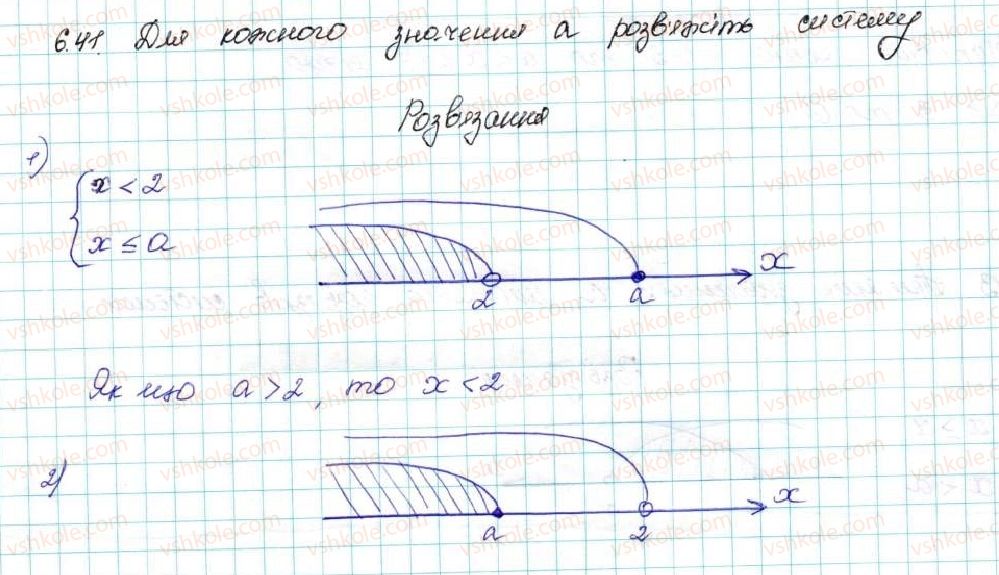 6.41. Для кожного значення a розв'яжіть систему
Розв'язання
1)
{ x < 2
x ≤ a
x
2 a
Якщо a > 2, то x < 2
2)
x
a 2